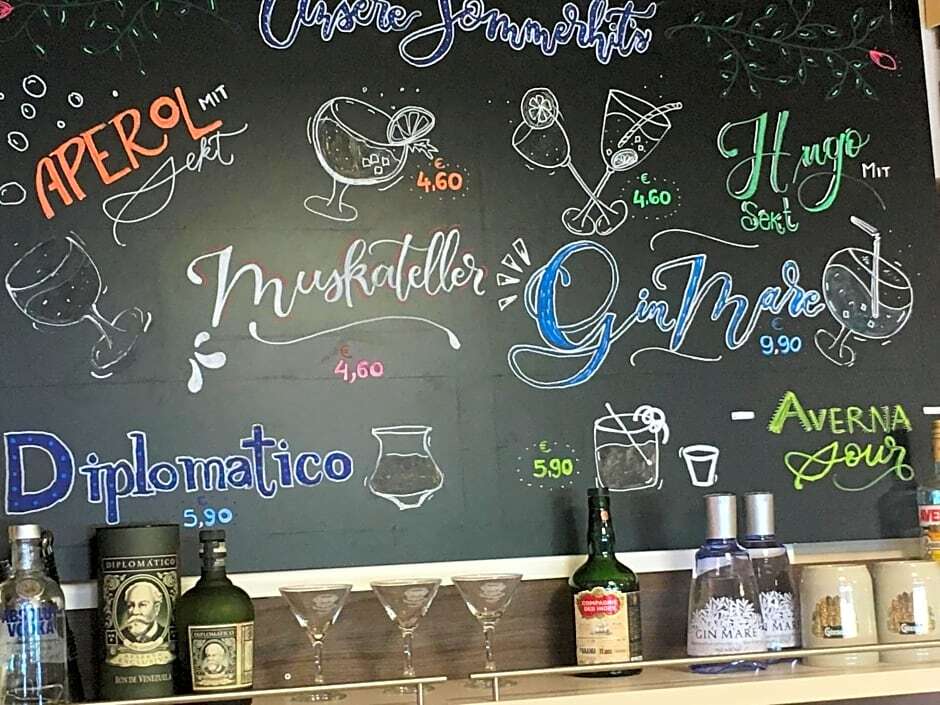 Unsere Sommerhits
APEROL MIT
Sekt
€
4.60
€
4.60
Hugo
MIT
Sekt
Muskateller
€
4,60
Gin Mare
€
9.90
Diplomatico
€
5,90
€
5.90
AVERNA
Sour
ABSOLUT
VODKA
DIPLOMÁTICO
RON DE VENEZUELA
DIPLOMÁTICO
COMPAGNIE
DES INDES
PANAMA
GIN MARE
GIN MARE
AVE